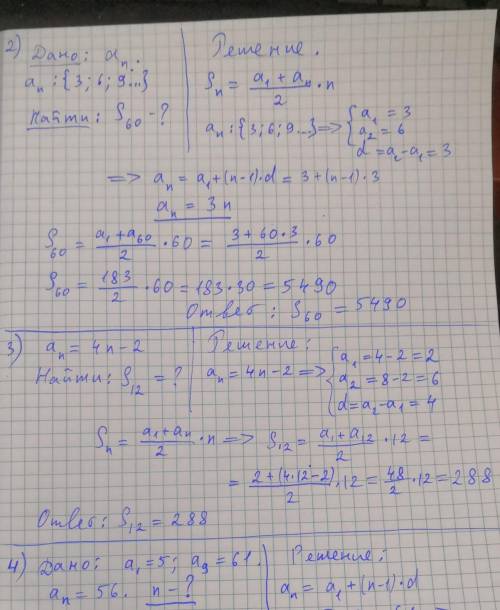 2) Дано: aₙ.
aₙ: {3; 6; 9...}
Найти: S₆₀ - ?
Решение.
Sₙ = (a₁ + aₙ)/2 · n
aₙ: {3; 6; 9...} => { a₁ = 3
a₂ = 6
d = a₂ - a₁ = 3
=> aₙ = a₁ + (n-1)·d = 3 + (n-1)·3
aₙ = 3n
S₆₀ = (a₁ + a₆₀)/2 · 60 = (3 + 60·3)/2 · 60
S₆₀ = 183/2 · 60 = 183·30 = 5490
Ответ: S₆₀ = 5490
3) aₙ = 4n - 2
Найти: S₁₂ = ?
Решение:
aₙ = 4n - 2 => { a₁ = 4 - 2 = 2
a₂ = 8 - 2 = 6
d = a₂ - a₁ = 4
Sₙ = (a₁ + aₙ)/2 · n => S₁₂ = (a₁ + a₁₂)/2 · 12 =
= (2 + (4·12 - 2))/2 · 12 = 48/2 · 12 = 288
Ответ: S₁₂ = 288
4) Дано: a₁ = 5; a₉ = 61.
aₙ = 56. n - ?
Решение:
aₙ = a₁ + (n-1)·d